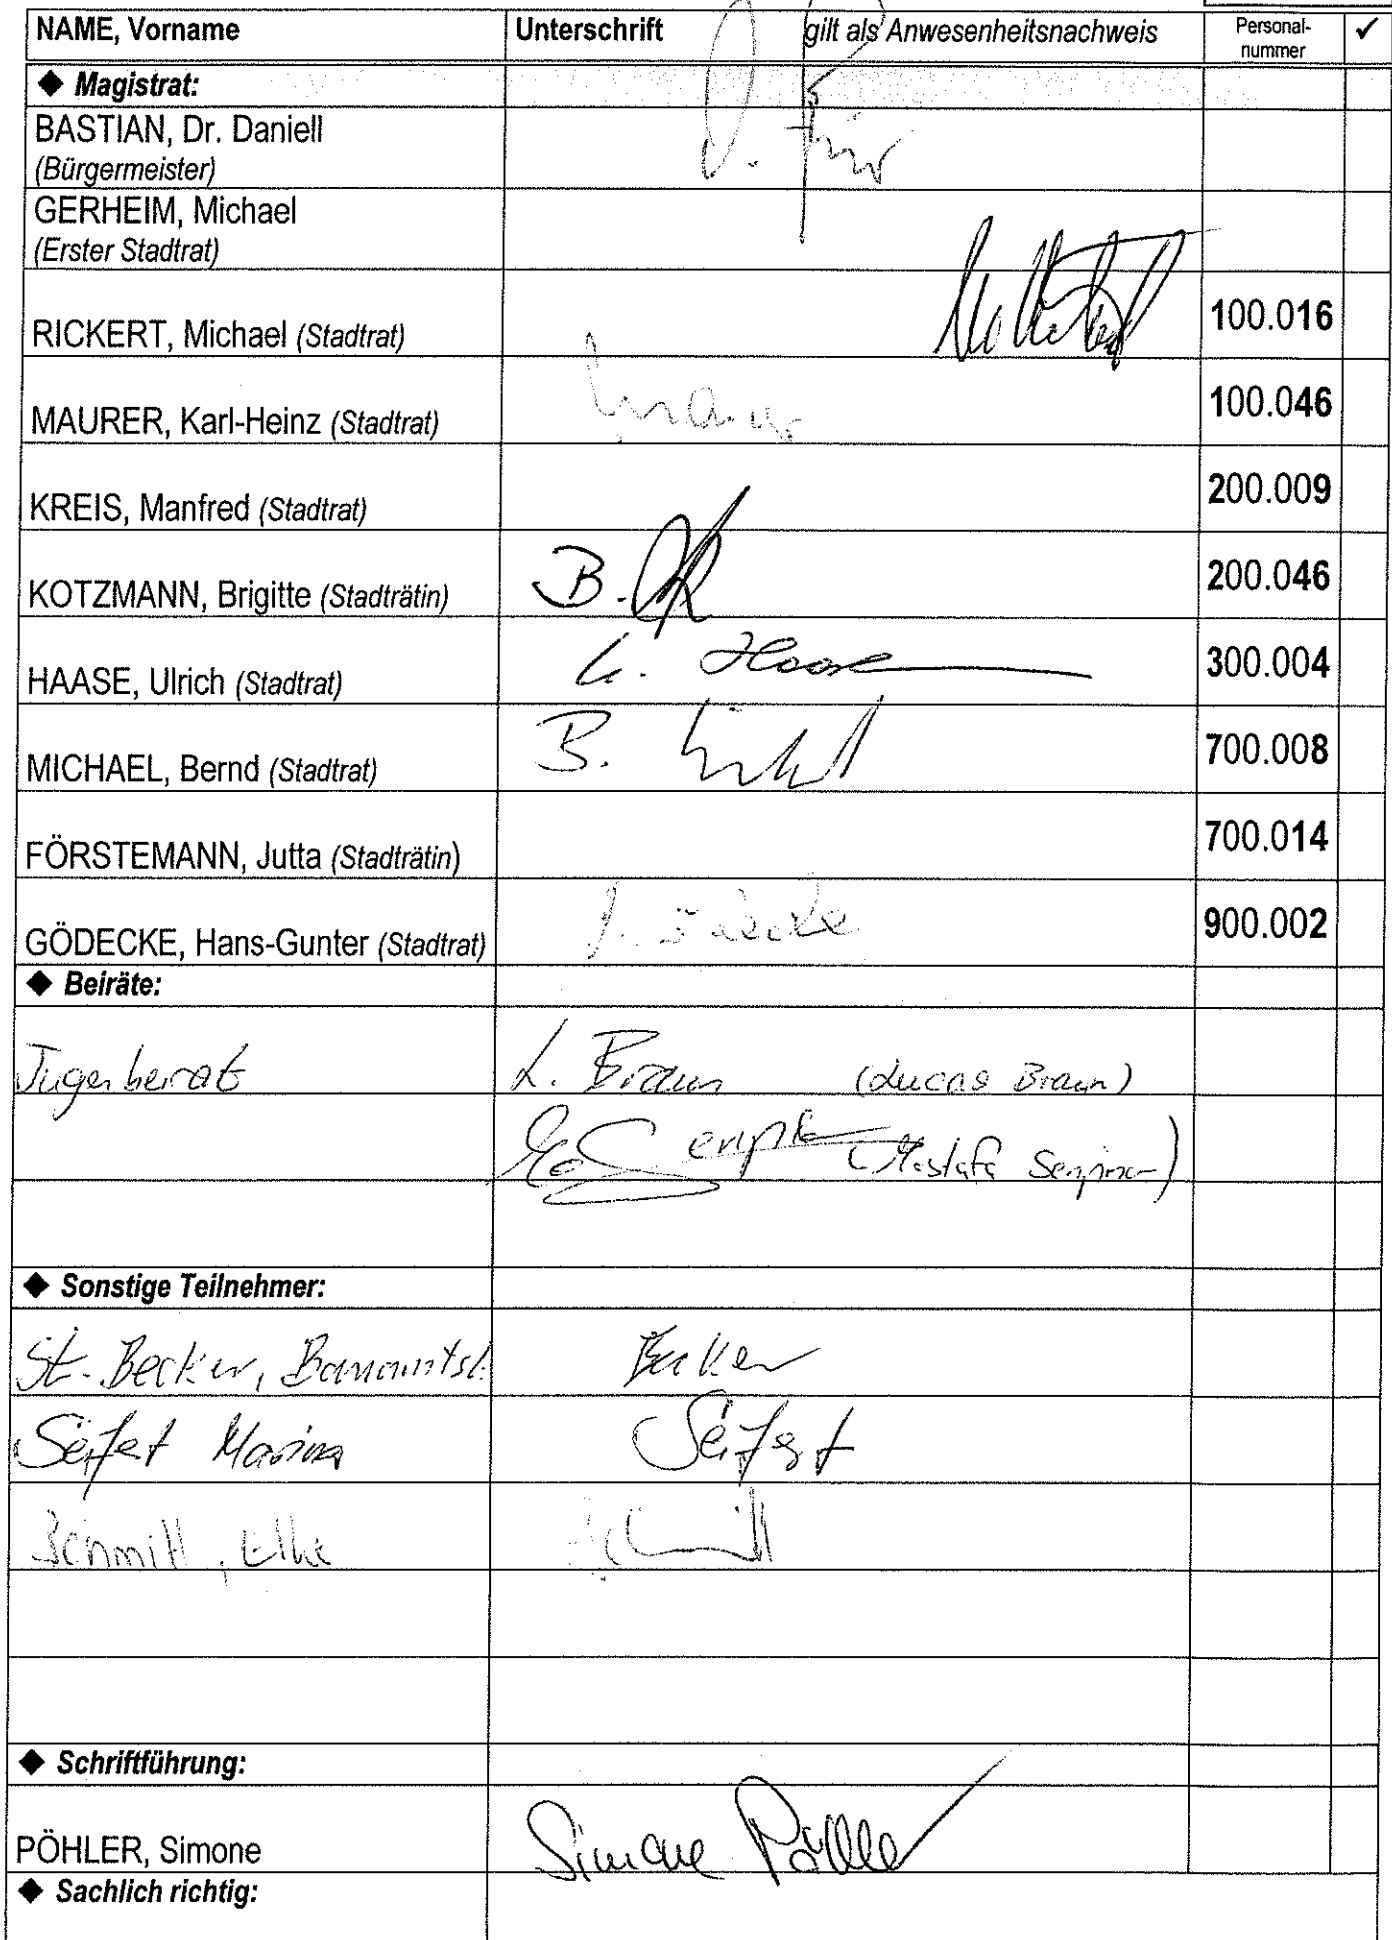 NAME, Vorname Unterschrift gilt als Anwesenheitsnachweis Personal-nummer ✓
◆ Magistrat:
BASTIAN, Dr. Daniell
(Bürgermeister)
GERHEIM, Michael
(Erster Stadtrat)
RICKERT, Michael (Stadtrat) 100.016
MAURER, Karl-Heinz (Stadtrat) 100.046
KREIS, Manfred (Stadtrat) 200.009
KOTZMANN, Brigitte (Stadträtin) B. 200.046
HAASE, Ulrich (Stadtrat) U. Haase 300.004
MICHAEL, Bernd (Stadtrat) B. 700.008
FÖRSTEMANN, Jutta (Stadträtin) 700.014
GÖDECKE, Hans-Gunter (Stadtrat) Gödecke 900.002
◆ Beiräte:
Jugenbeirat L. Braun (Lucas Braun)
◆ Sonstige Teilnehmer:
St. Becker, Becker
Seifert Marina Seifert
Schmitt, Elke Schmitt
◆ Schriftführung:
PÖHLER, Simone Simone Pöhler
◆ Sachlich richtig: